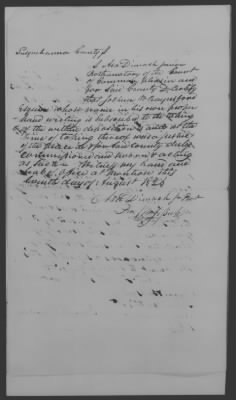 Susquehanna County SS
I Asa Dimock junior
Prothonotary of the Court
of Common Pleas in and
for said County Do Certify
that Joshua W. Raynsford
Esquire whose name in his own proper
hand writing is subscribed to the taking
of the within deposition is and at the
time of taking thereof was a Justice
of the peace in & for said county duly
commissioned and sworn & acting
as such. Witness my hand and
Seal of Office at Montrose this
day of August 1826
Asa Dimock Jr Prot